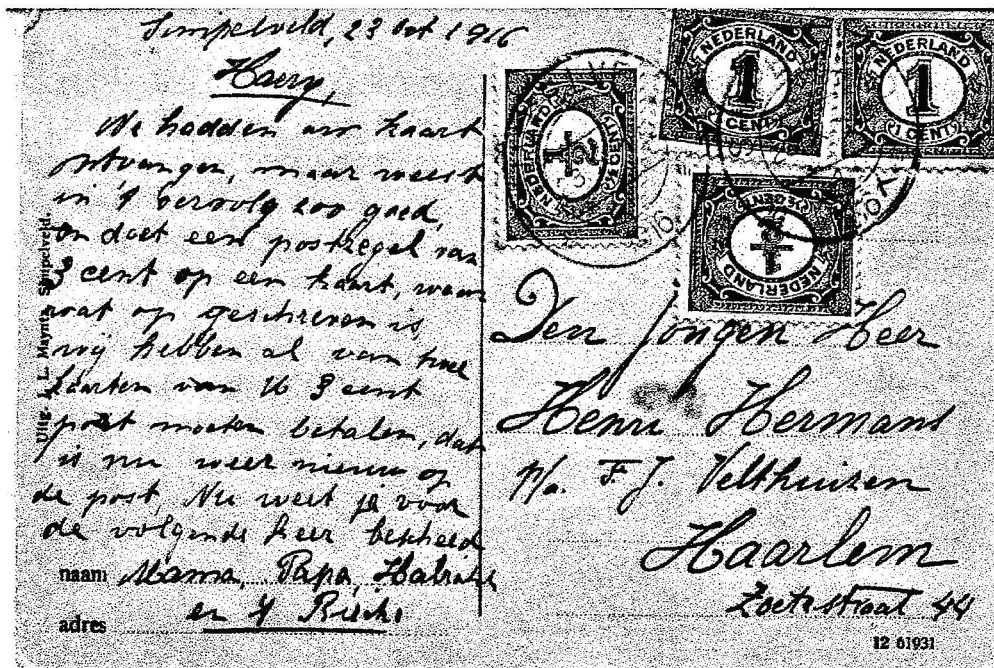 Simpelveld, 23 oct 1916
Harry,
We hadden uw kaart
ontvangen, maar weest
in 't vervolg zoo goed,
en doet een postzegel van
3 cent op een kaart, waar
wat op geschreven is,
wij hebben al van twee
kaarten van U 3 cent
post moeten betalen, dat
is nu weer nieuw op
de post, Nu weet je voor
de volgende keer bescheid
naam Mama, Papa,
en
adres
Uitg. J. L. Simpelveld.
NEDERLAND
1
1 CENT
NEDERLAND
1
(1 CENT)
½
NEDERLAND
½
Den Jongen Heer
Henri Hermans
p/a. F. J. Velthuizen
Haarlem
Zoetestraat 44
12 61931